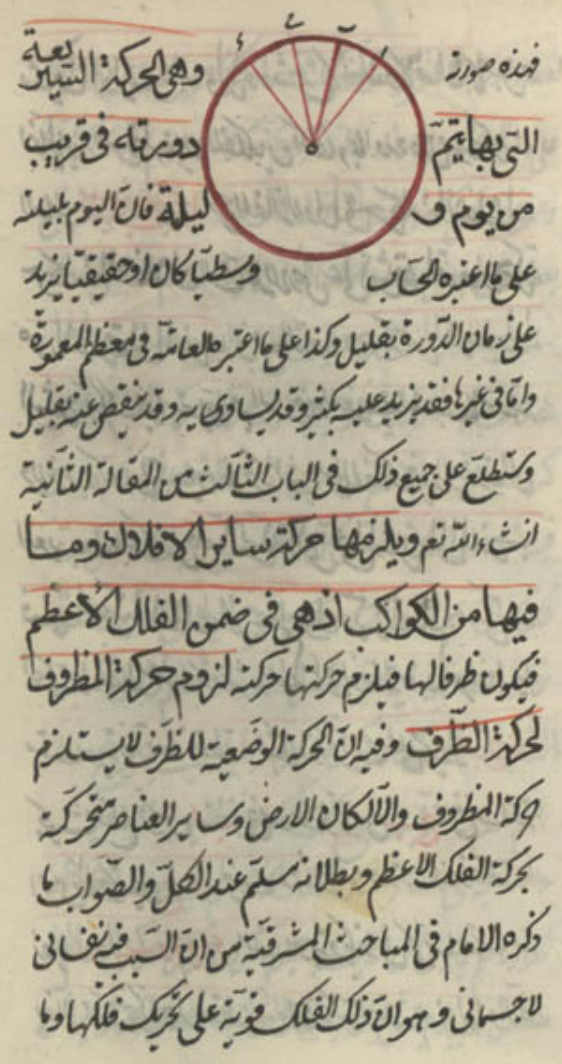 فهذه صورته وهى الحركة السريعة
التى بها يتمّ دورته فى قريب
من يوم و ليلة فانّ اليوم بليلته
على ما اعتبره الحساب وسطيّا كان او حقيقيّا يزيد
على زمان الدّورة بقليل وكذا على ما اعتبره العامّة فى معظم المعمورة
وامّا فى غيرها فقد يزيد عليه بكثير وقد يساويه وقد ينقص عنه بقليل
وستطلع على جميع ذلك فى الباب الثالث من المقالة الثانية
انشاء اللّه تع ويلزمها حركة ساير الافلاك وما
فيها من الكواكب اذ هى فى ضمن الفلك الاعظم
فيكون ظرفا لها فيلزم حركتها حركته لزوم حركة المظروف
لحركة الظّرف وفيه انّ الحركة الوضعية للظرف لا يستلزم
حركة المظروف والّا لكان الارض وساير العناصر متحركة
بحركة الفلك الاعظم وبطلانه مسلّم عند الكلّ والصّواب ما
ذكره الامام فى المباحث المشرقيّة من انّ السبب فيه نفسانى
لا جسمانى وهو انّ ذلك الفلك قويّة على تحريك فلكها وما